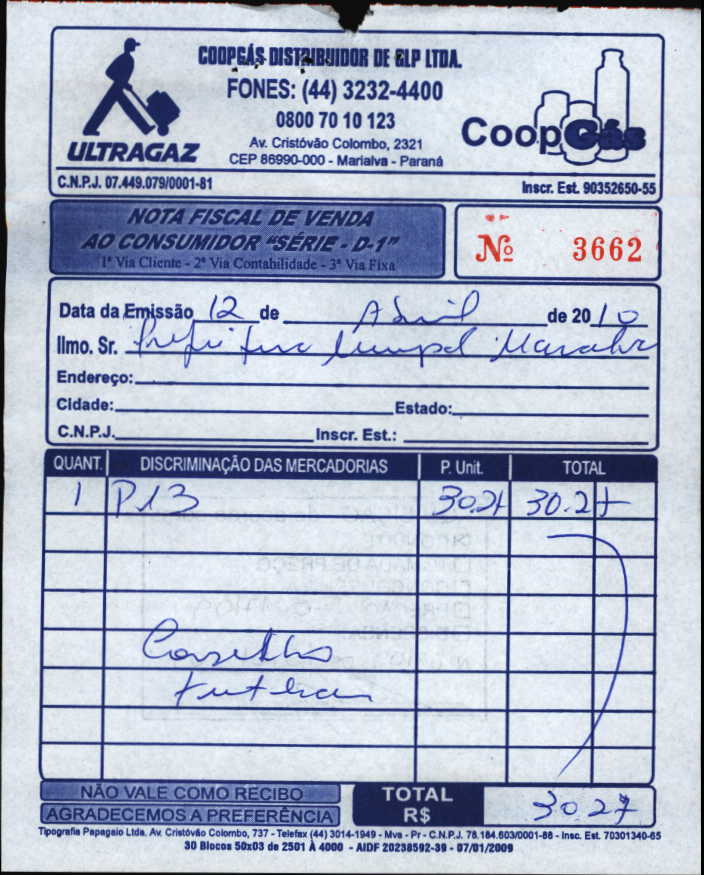 COOPGÁS DISTRIBUIDOR DE GLP LTDA.
FONES: (44) 3232-4400
0800 70 10 123
Av. Cristóvão Colombo, 2321
CEP 86990-000 - Marialva - Paraná
ULTRAGAZ
CoopGás
C.N.P.J. 07.449.079/0001-81
Inscr. Est. 90352650-55
NOTA FISCAL DE VENDA
AO CONSUMIDOR "SÉRIE - D-1"
1ª Via Cliente - 2ª Via Contabilidade - 3ª Via Fixa
Nº 3662
Data da Emissão 12 de Abril de 2010
Ilmo. Sr. Prefeitura Marialva
Endereço:
Cidade: Estado:
C.N.P.J. Inscr. Est.:
QUANT. DISCRIMINAÇÃO DAS MERCADORIAS P. Unit. TOTAL
1 P13 30.27 30.27
Conselho
Tutelar
NÃO VALE COMO RECIBO
AGRADECEMOS A PREFERÊNCIA
TOTAL R$ 30.27
Tipografia Papagaio Ltda. Av. Cristóvão Colombo, 737 - Telefax (44) 3014-1949 - Mva - Pr - C.N.P.J. 78.184.603/0001-88 - Insc. Est. 70301340-65
30 Blocos 50x03 de 2501 À 4000 - AIDF 20238592-39 - 07/01/2009